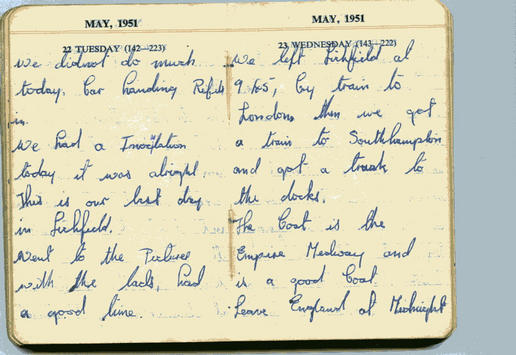 MAY, 1951
22 TUESDAY (142—223)
we did not do much
today, bar handing Refills
in.
We had a Inoculation
today it was alright
This is our last day
in Lichfield.
Went to the Pictures
with the lads, had
a good time.
MAY, 1951
23 WEDNESDAY (143—222)
We left Lichfield at
by train to
London then we got
a train to Southhampton
and got a truck to
the docks.
The Boat is the
Empire Medway and
is a good Boat
Leave England at Midnight